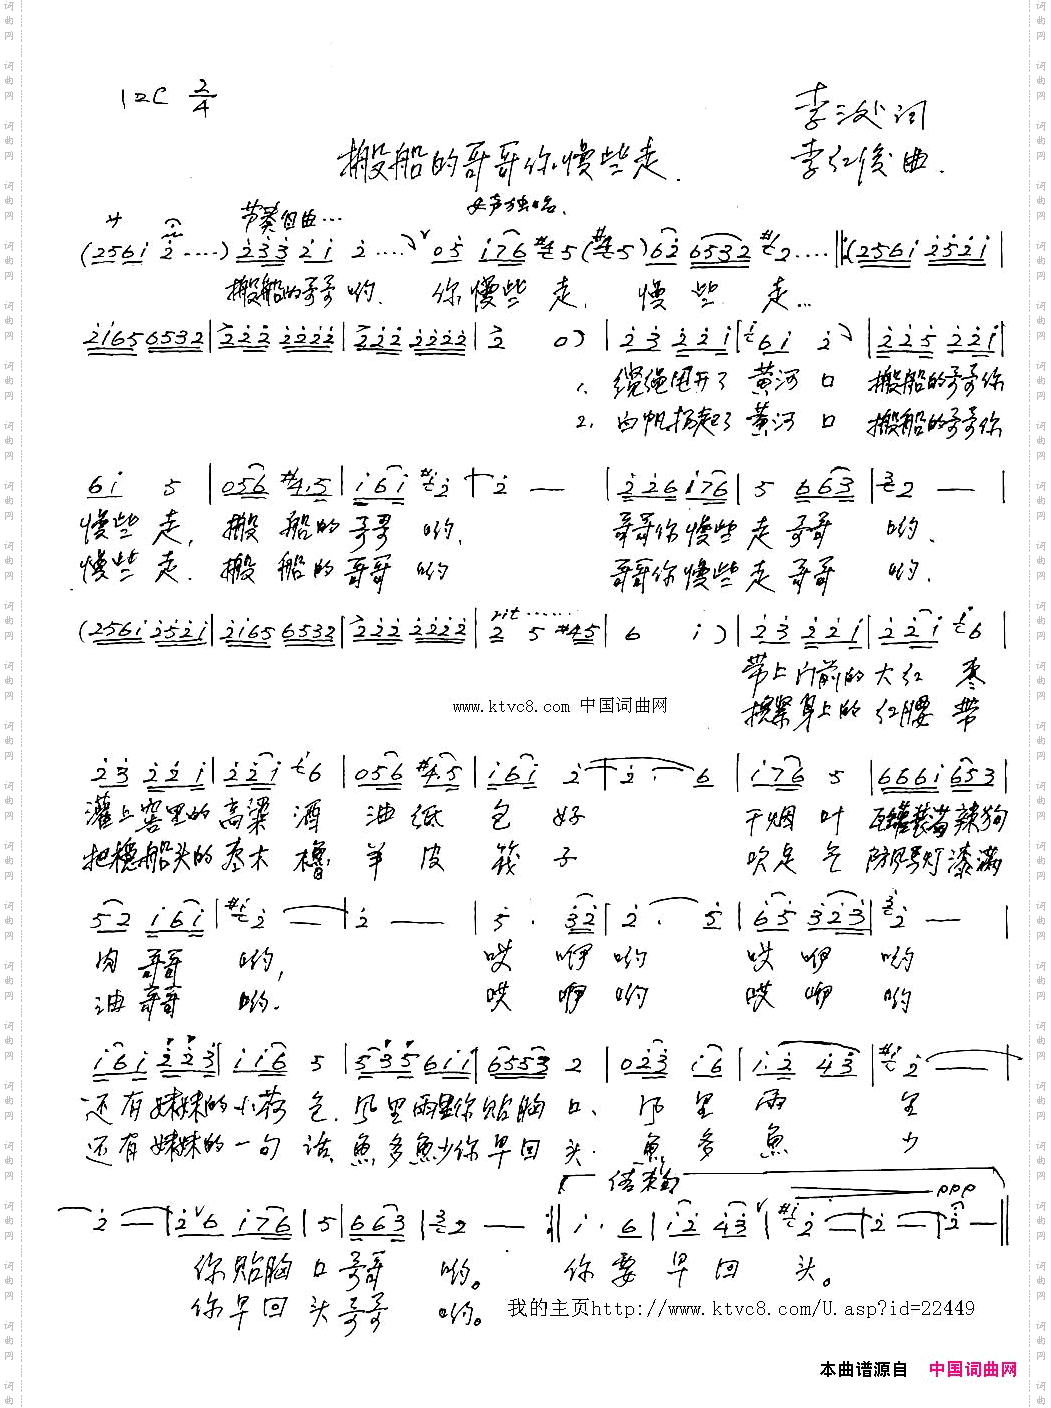 1=C 2/4
李三处词
搬船的哥哥你慢些走
李红俊曲
女声独唱
节奏自由…
(2561 2····) 233 21 2···· 05 176 #45 (#45) 62 6532 2···· ‖:(2561 2521|
搬船的哥哥 哟. 你慢些 走. 慢 些 走…
2165 6532|222 2222|222 2222|2 0)|23 221|61 2|225 221|
1. 缆绳甩开了 黄河 口 搬船的哥哥你
2. 白帆扬起了 黄河 口 搬船的哥哥你
61 5|056 #4.5|161 2|2 —|226 176|5 663|2 —|
慢些 走, 搬 船的 哥哥 哟. 哥哥你慢些 走 哥哥 哟.
慢些 走. 搬 船的 哥哥 哟 哥哥你慢些 走 哥哥 哟.
(2561 2521|2165 6532|222 2222|2 5 #45|6 1)|23 221|221 6|
rit……
带上门前的 大红 枣
www.ktvc8.com 中国词曲网
身上的 红腰 带
23 221|221 6|056 #4.5|161 2|2· 6|176 5|6661 653|
灌上窖里的 高粱 酒 油 纸 包 好 干烟 叶 瓦罐装着辣狗
把稳船头的 枣木 橹 羊 皮 筏 子 吹足 气 防风马灯漆满
52 161|2 —|2 —|5· 32|2· 5|65 323|2 —|
肉 哥哥 哟, 哎 咿 哟 哎 咿 哟
油 哥哥 哟. 哎 咿 哟 哎 咿 哟
161 223|116 5|535 611|6553 2|023 16|1.2 43|2 —|
还有妹妹的小荷 包. 风里雨里你贴胸 口、 风 里 雨 里
还有妹妹的一句 话、鱼多鱼少你早回 头. 鱼 多 鱼 少
结束句
ppp
2 —|26 176|5|663|2 —:‖1· 6|12 43|2 —|2 —|2 —‖
你贴胸 口 哥哥 哟。 你 要 早 回 头。
你早回 头 哥哥 哟。 我的主页http://www.ktvc8.com/U.asp?id=22449
本曲谱源自 中国词曲网